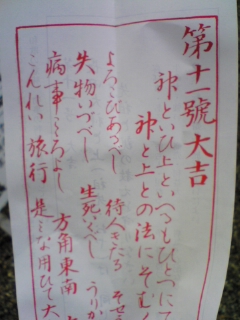 第十一號大吉
神といひ上といへるもひとつにて
神と上との法にそむく
よろこびあるべし 待人きたる
失物いづべし 生死いくべし うりか
病事こゝろよし 方角東南
こんれい 旅行 是みな用ひて大